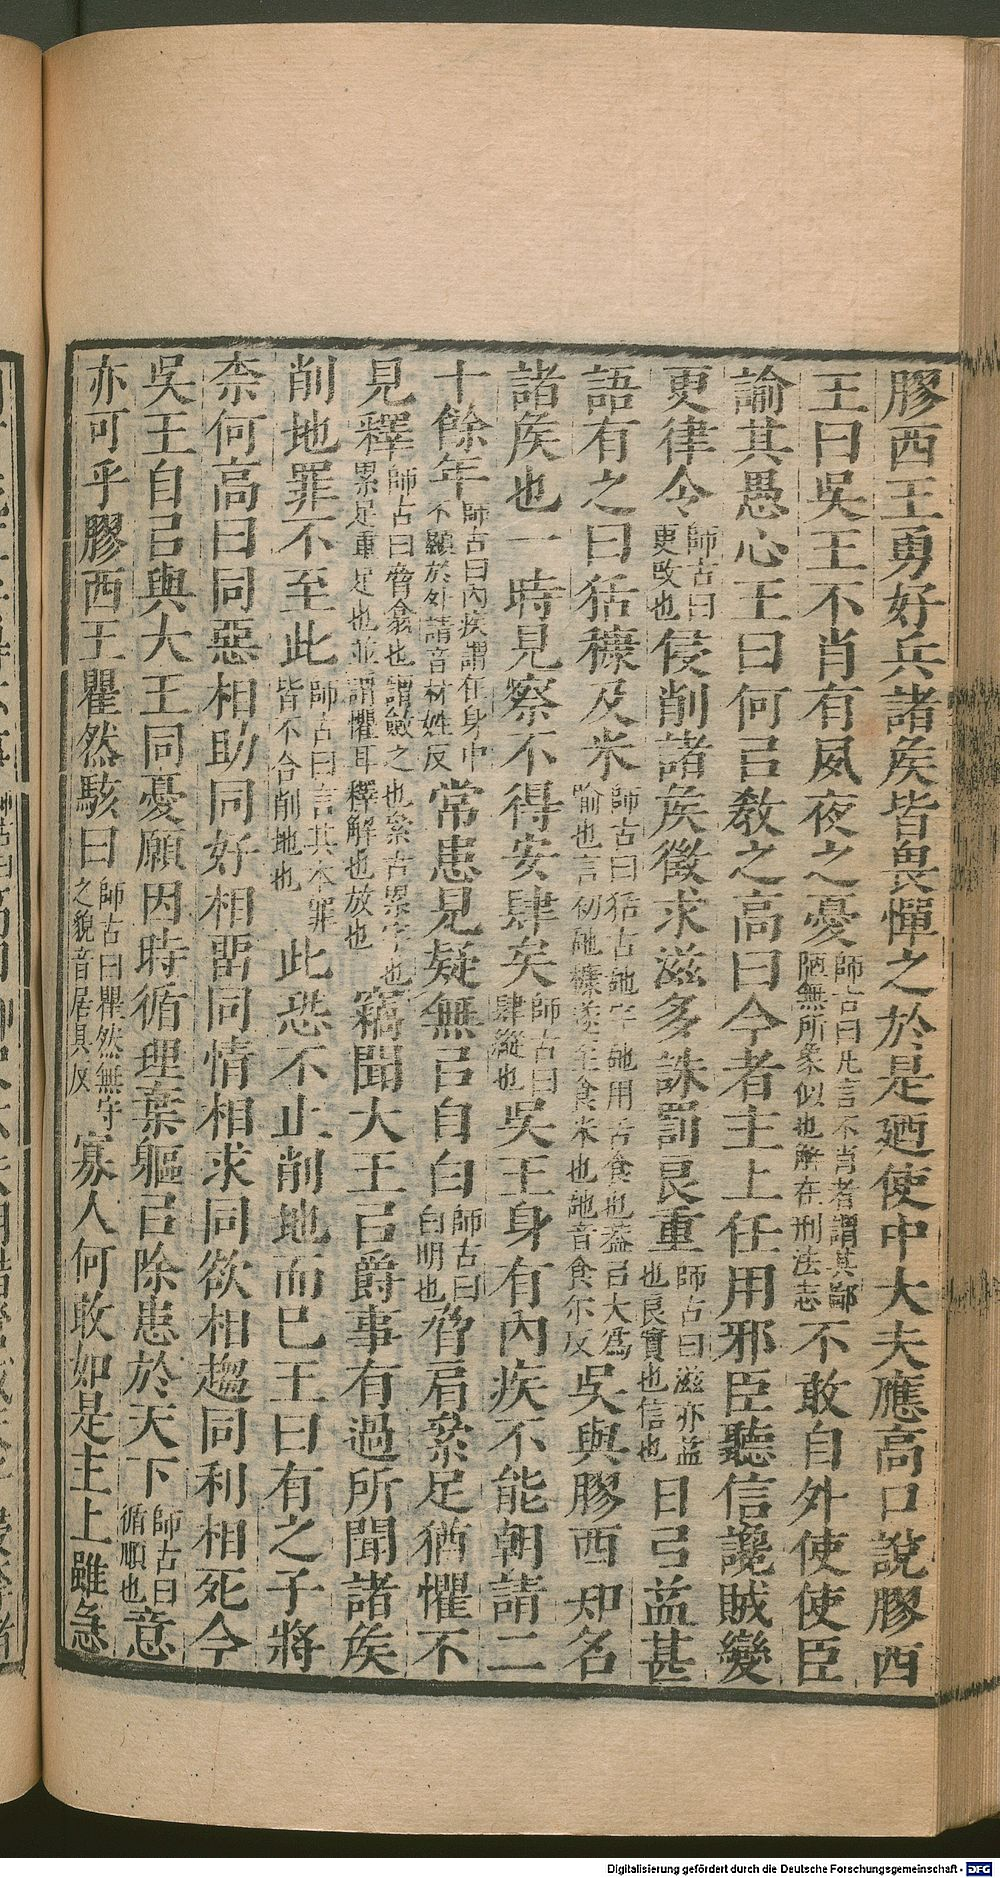 膠西王勇好兵諸矦皆畏憚之於是廼使中大夫應高口說膠西
王曰吳王不肖有夙夜之憂師古曰凡言不肖者謂其鄙陋無所象似也解在刑法志不敢自外使使臣
諭其愚心王曰何㠯敎之高曰今者主上任用邪臣聽信讒賊變
更律令師古曰更改也侵削諸矦徵求滋多誅罰良重師古曰滋亦益也良實也信也日㠯益甚
語有之曰狧穅及米師古曰狧古䑛字䑛用舌食也蓋㠯犬爲喻也言初䑛穅遂至食米也䑛音食尔反吳與膠西知名
諸矦也一時見察不得安肆矣師古曰肆縱也吳王身有內疾不能朝請二
十餘年師古曰內疾謂在身中不顯於外請音材姓反常患見疑無㠯自白師古曰白明也脅肩絫足猶懼不
見釋師古曰脅翕也謂斂之也絫古累字也累足重足也並謂懼耳釋解也放也竊聞大王㠯爵事有過所聞諸矦
削地罪不至此師古曰言其本罪皆不合削地也此恐不止削地而已王曰有之子將
柰何高曰同惡相助同好相畱同情相求同欲相趨同利相死今
吳王自㠯與大王同憂願因時循理棄軀㠯除患於天下師古曰循順也意
亦可乎膠西王瞿然駭曰師古曰瞿然無守之貌音居具反寡人何敢如是主上雖急
Digitalisierung gefördert durch die Deutsche Forschungsgemeinschaft - DFG